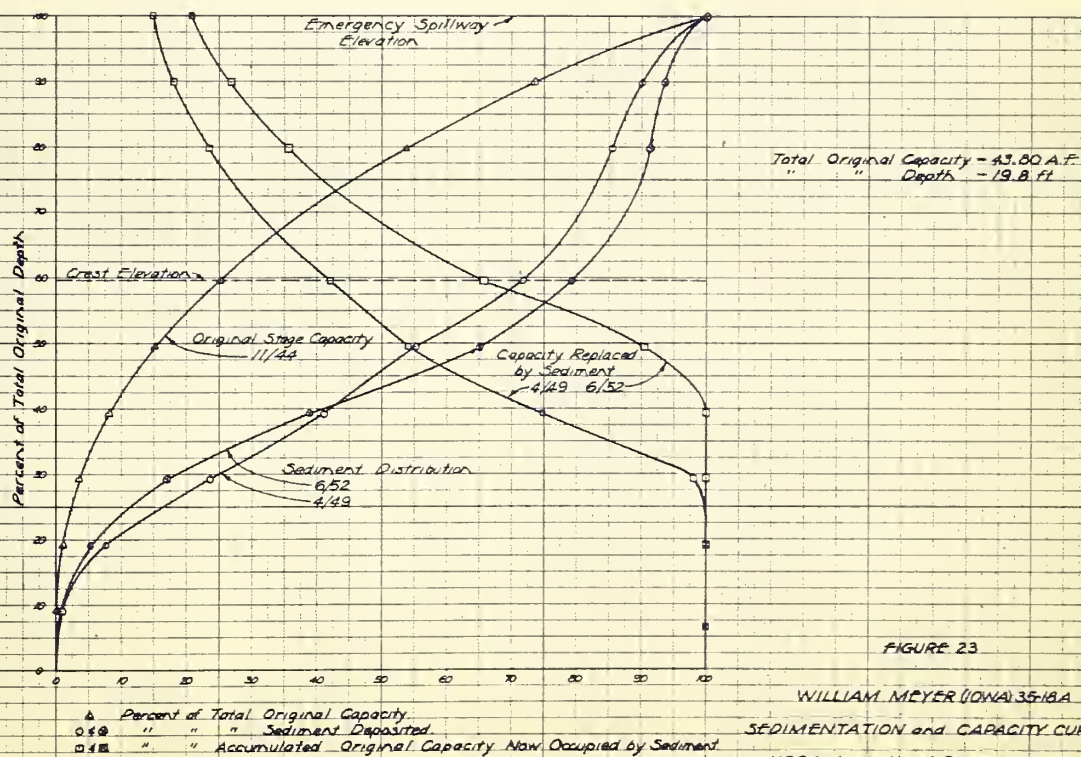 Emergency Spillway
Elevation
Total Original Capacity - 43.80 A.F.
" " Depth - 19.8 ft
Percent of Total Original Depth
Crest Elevation
Original Stage Capacity
11/44
Capacity Replaced
by Sediment
4/49 6/52
Sediment Distribution
6/52
4/49
100
90
80
70
60
50
40
30
20
10
0
0 10 20 30 40 50 60 70 80 90 100
FIGURE 23
Percent of Total Original Capacity.
" " " Sediment Deposited.
" " Accumulated Original Capacity Now Occupied by Sediment
WILLIAM MEYER (IOWA) 35-18A
SEDIMENTATION and CAPACITY